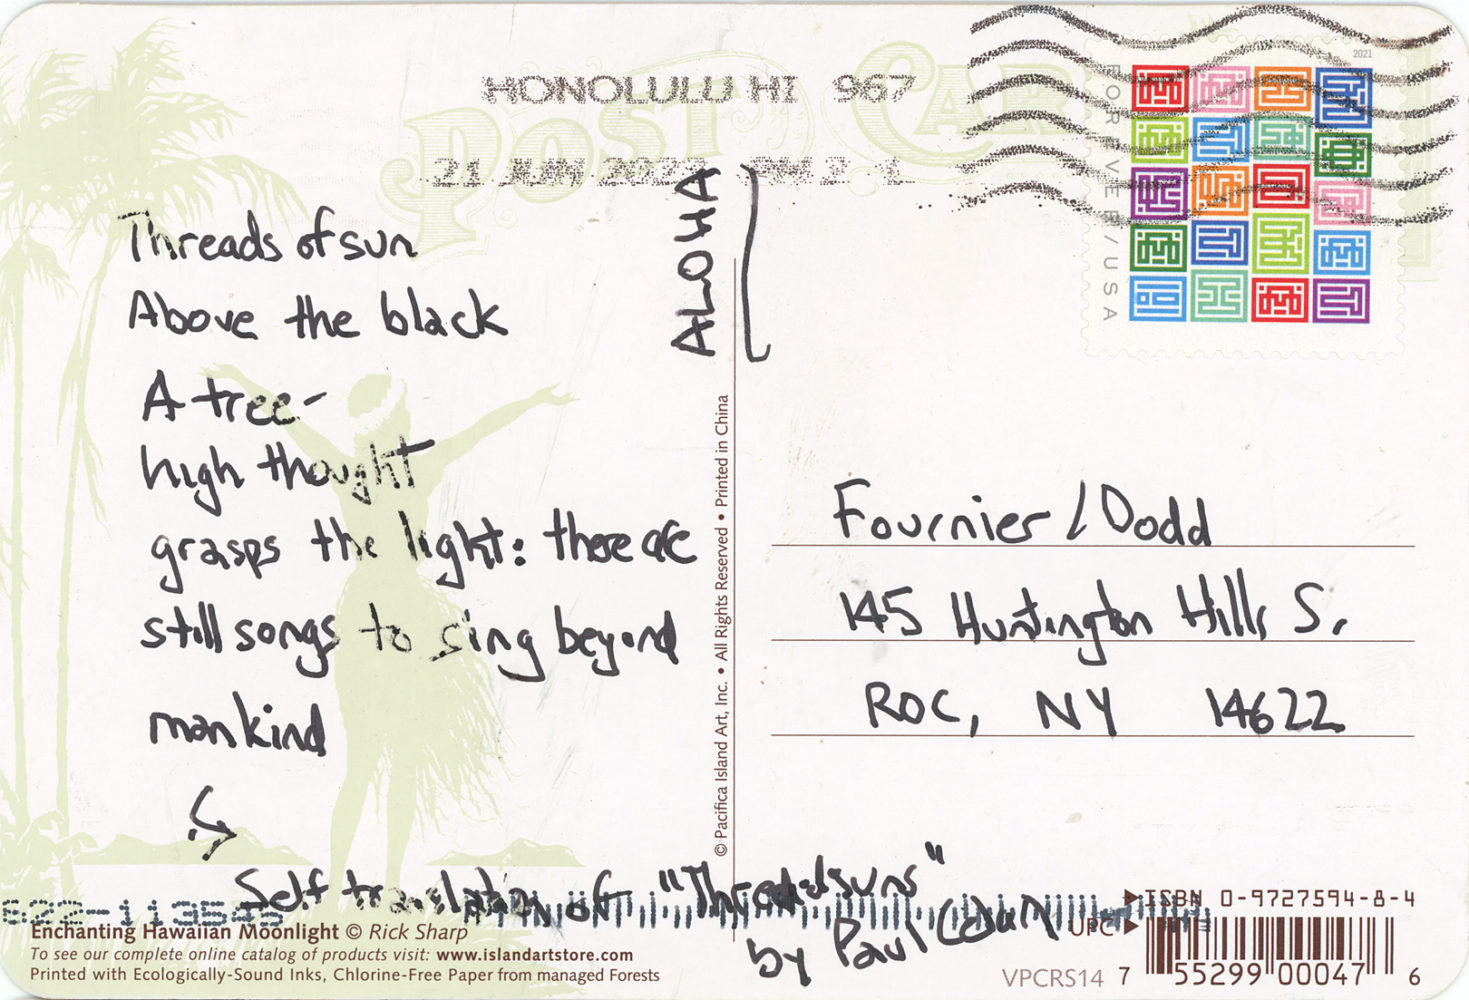 POST CARD
HONOLULU HI 967
21 JUN 2022 PM 2 L
2021
FOREVER/USA
Threads of sun
Above the black
A tree-
high thought
grasps the light: there are
still songs to sing beyond
mankind
Self translation of "Threadsuns"
by Paul Celan
ALOHA
Fournier / Dodd
145 Huntington Hills S.
ROC, NY 14622
© Pacifica Island Art, Inc. • All Rights Reserved • Printed in China
Enchanting Hawaiian Moonlight © Rick Sharp
To see our complete online catalog of products visit: www.islandartstore.com
Printed with Ecologically-Sound Inks, Chlorine-Free Paper from managed Forests
ISBN 0-9727594-8-4
UPC
VPCRS14
7 55299 00047 6